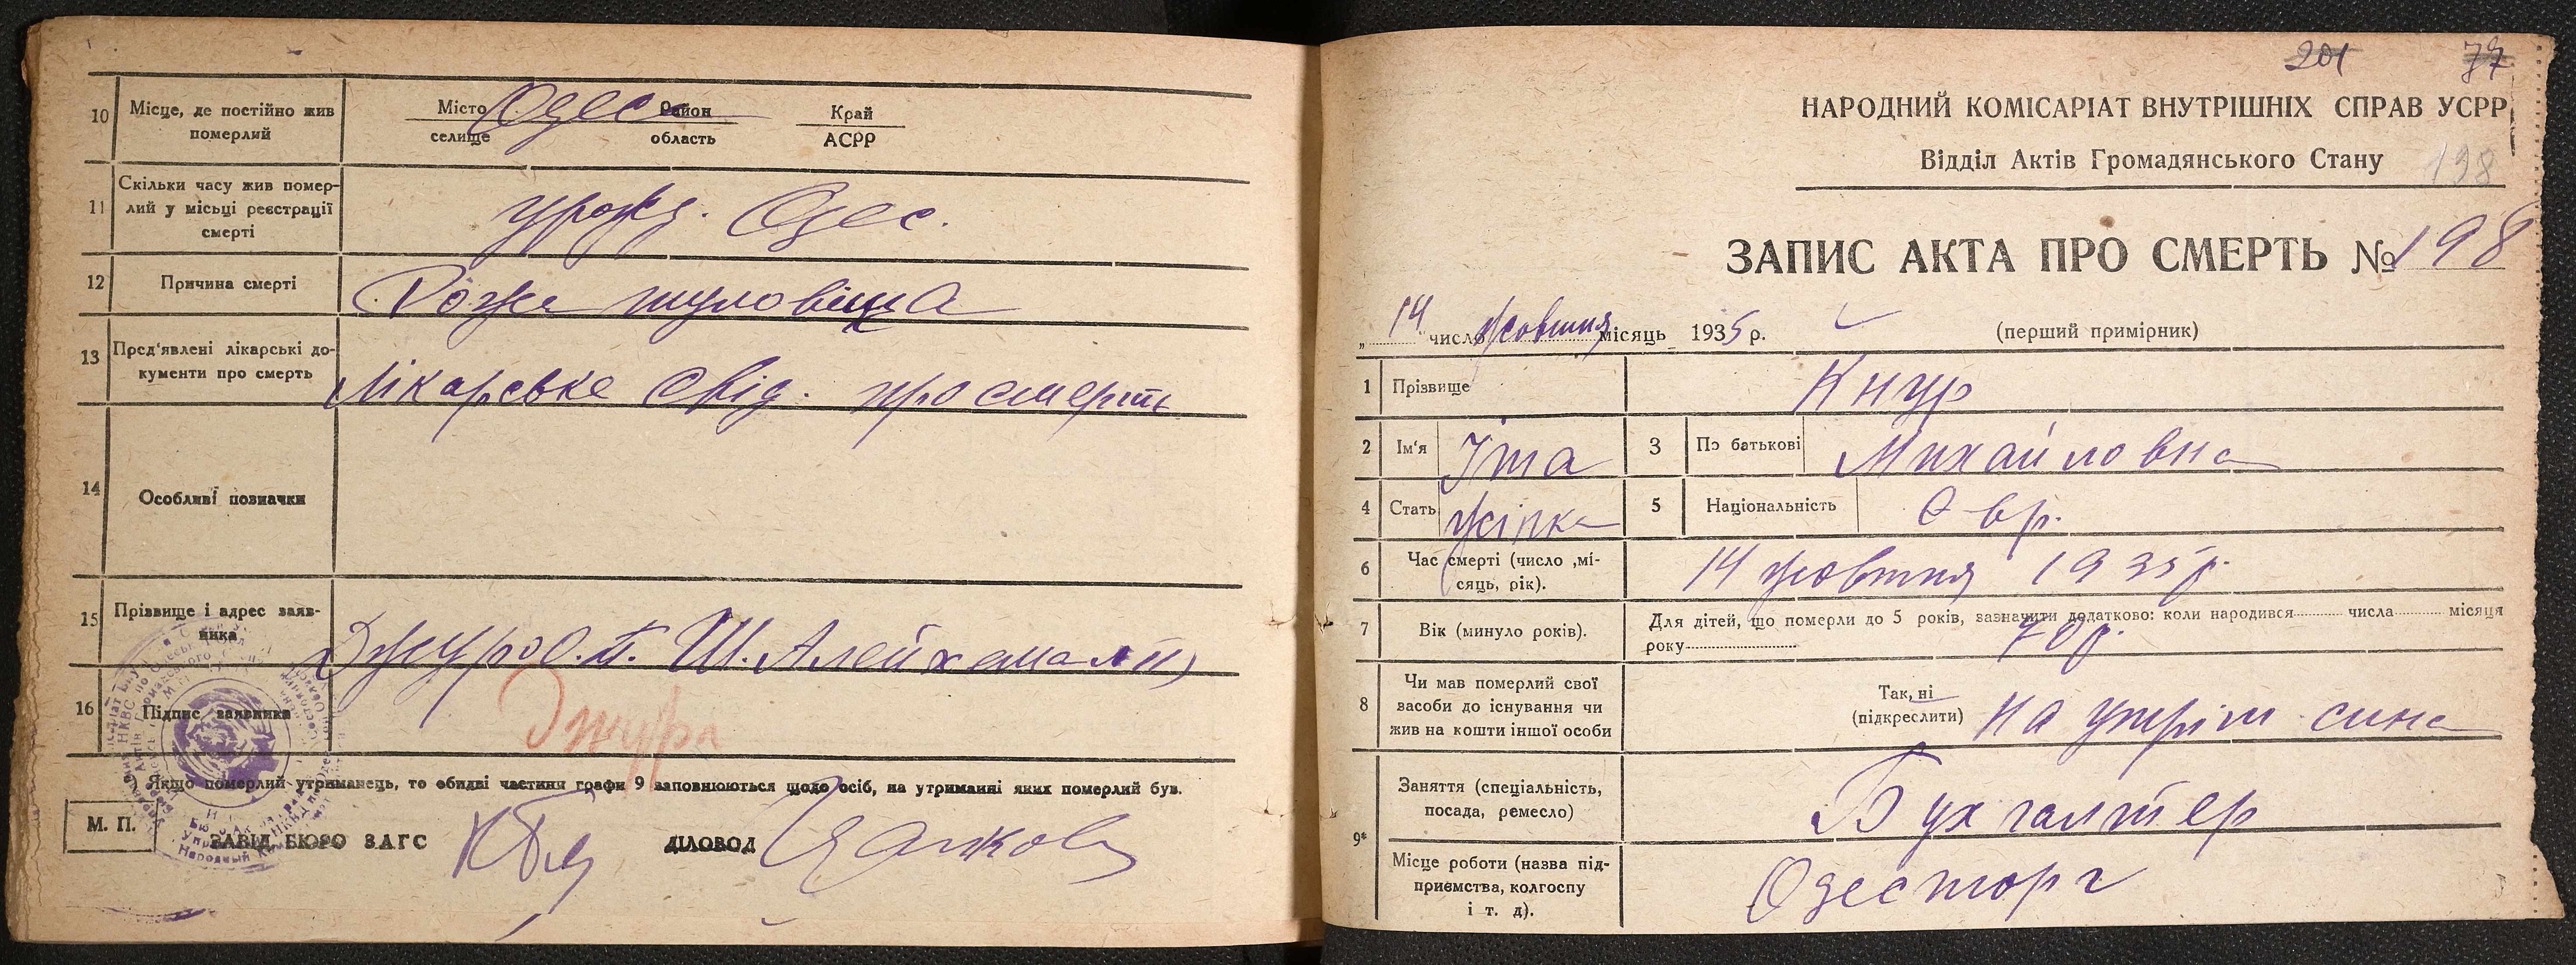 10 Місце, де постійно жив
померлий
Місто Одеса Район Край
селище область АСРР
11 Скільки часу жив помер-
лий у місьці реєстрації
смерті
урожд. Одес.
12 Причина смерті Рожа туловища
13 Пред'явлені лікарські до-
кументи про смерть
Лікарське свід. про смерть
14 Особливі позначки
15 Прізвище і адрес заяв-
ника
Ш. Алейхема
16 Підпис заявника Джура
Якщо померлий утриманець, то обидві частини графи 9 заповнюються щодо осіб, на утриманні яких померлий був.
М. П.
ЗАВІД. БЮРО ЗАГС ДІЛОВОД
201 77
НАРОДНИЙ КОМІСАРІАТ ВНУТРІШНІХ СПРАВ УСРР
Відділ Актів Громадянського Стану 198
ЗАПИС АКТА ПРО СМЕРТЬ № 198
„14" число жовтня місяць 1935 р. (перший примірник)
1 Прізвище Кнур
2 Ім'я Іта 3 По батькові Михайловна
4 Стать жінка 5 Національність Євр.
6 Час смерті (число ,мі-
сяць, рік).
14 жовтня 1935 р.
7 Вік (минуло років). Для дітей, що померли до 5 років, зазначити додатково: коли народився числа місяця
року 70 р.
8 Чи мав померлий свої
засоби до існування чи
жив на кошти іншої особи
Так, ні
(підкреслити) на утрім сина
9* Заняття (спеціальність,
посада, ремесло)
Бухгалтер
Місце роботи (назва під-
приємства, колгоспу
і т. д).
Одесторг